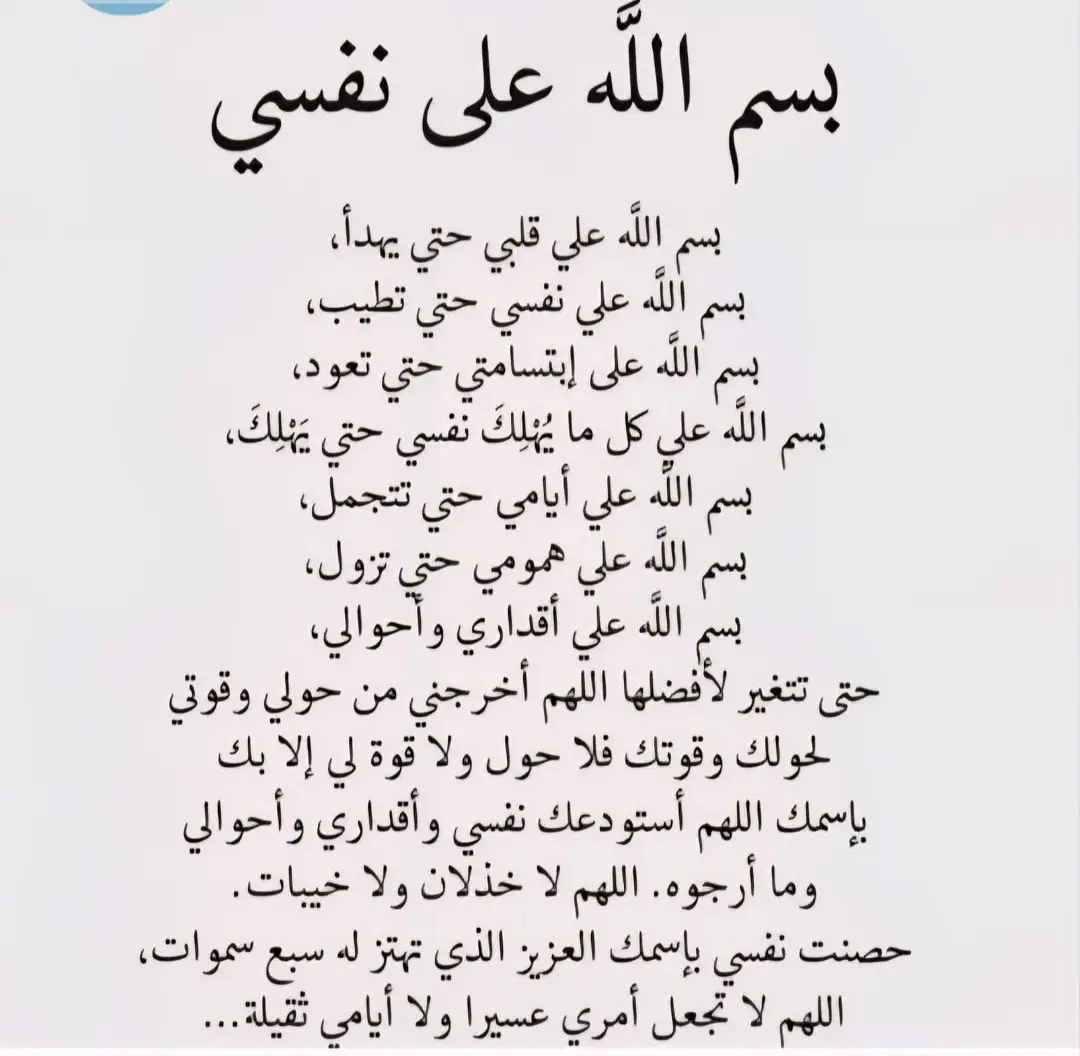 بسم اللَّه على نفسي
بسم اللَّه علي قلبي حتي يهدأ،
بسم اللَّه علي نفسي حتي تطيب،
بسم اللَّه على إبتسامتي حتي تعود،
بسم اللَّه علي كل ما يُهْلِكَ نفسي حتي يَهْلِكَ،
بسم اللَّه علي أيامي حتي تتجمل،
بسم اللَّه علي همومي حتي تزول،
بسم اللَّه علي أقداري وأحوالي،
حتى تتغير لأفضلها اللهم أخرجني من حولي وقوتي
لحولك وقوتك فلا حول ولا قوة لي إلا بك
بإسمك اللهم أستودعك نفسي وأقداري وأحوالي
وما أرجوه. اللهم لا خذلان ولا خيبات.
حصنت نفسي بإسمك العزيز الذي تهتز له سبع سموات،
اللهم لا تجعل أمري عسيرا ولا أيامي ثقيلة...